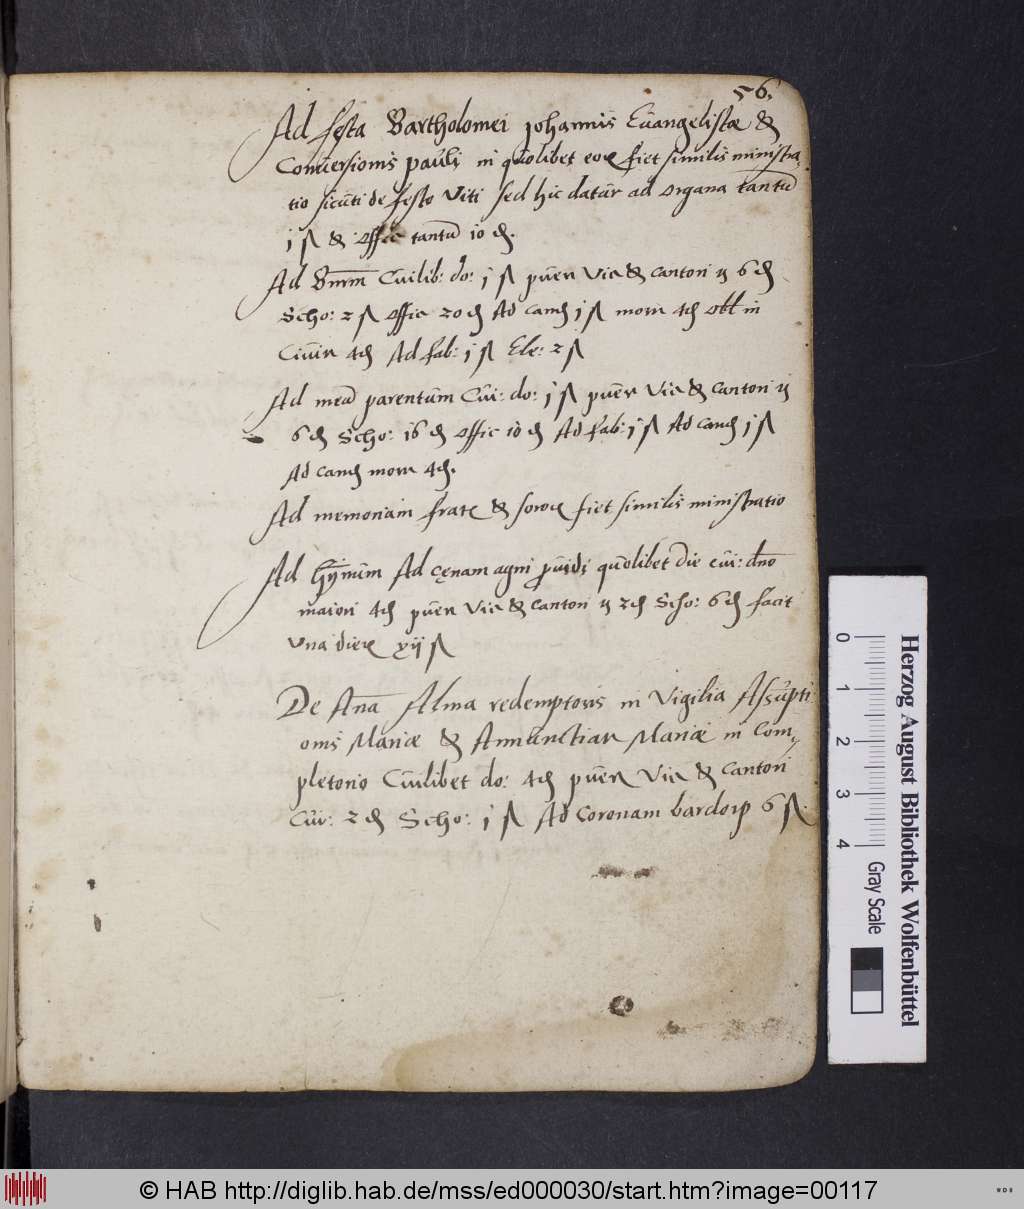 56.
Ad festa Bartholomei Johannis Euangelistæ &
Conuersionis pauli in quolibet eor fiet similis ministra-
tio sicuti de festo Viti sed hic datur ad organa tantū
j ß & offic tantū 10 ₰.
Ad Cuilib: do: j ß puer Vic & cantori 6 ₰
Scho: 2 ß offic 20 ₰ Ad camp j ß morn 4 ₰ obl in
Ciuir 4 ₰ Ad fab: j ß Ele: 2 ß
Ad meā parentum Cui: do: j ß puer Vic & cantori
6 ₰ Scho: 16 ₰ offic 10 ₰ Ad fab: j ß Ad camp j ß
Ad camp morn 4 ₰.
Ad memoriam fratr & soror fiet similis ministratio
Ad Hymnum Ad cęnam agni prouidi quolibet die cui: dno
maiori 4 ₰ puer Vic & cantori 2 ₰ Scho: 6 ₰ facit
Vna dier xij ß
De Anā Alma redemptoris in Vigilia Assūpti
onis Mariæ & Annunctiar Mariæ in Com-
pletorio Cuilibet do: 4 ₰ puer Vic & cantori
Cui: 2 ₰ Scho: j ß Ad Coronam bardorp 6 ß.
0 1 2 3 4
Gray Scale
Herzog August Bibliothek Wolfenbüttel
© HAB http://diglib.hab.de/mss/ed000030/start.htm?image=00117